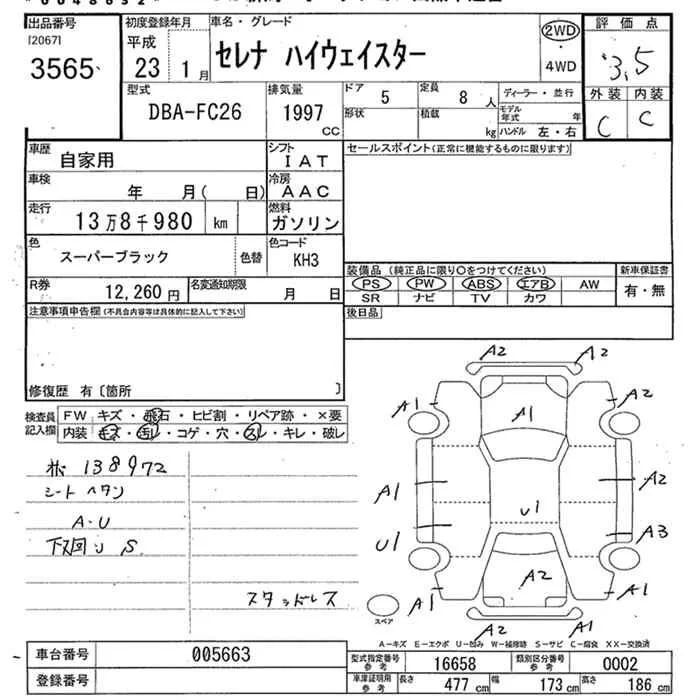 出品番号
[2067]
3565
初度登録年月
平成
23 1月
車名・グレード
セレナ ハイウェイスター
2WD
・
4WD
評価点
3.5
外装 内装
C C
型式
DBA-FC26
排気量
1997
CC
ドア 5
定員 8 人
形状
積載 kg
ディーラー・並行
モデル年式 年
ハンドル 左・右
車歴
自家用
シフト
IAT
セールスポイント(正常に機能するものに限ります)
車検
年 月( 日)
冷房
AAC
走行
13万8千980 km
燃料
ガソリン
色
スーパーブラック
色替
色コード
KH3
装備品 (純正品に限り○をつけてください)
PS PW ABS エアB AW
SR ナビ TV カワ
新車保証書
有・無
R券
12,260円
名変通知期限
月 日
後日品
注意事項申告欄(不具合内容等は具体的に記入して下さい)
修復歴 有〔箇所 〕
検査員
記入欄
FW キズ・飛石・ヒビ割・リペア跡・×要
内装 キズ・汚レ・コゲ・穴・スレ・キレ・破レ
138972
シートヘタン
A・U
下廻り S
スタッドレス
A2 A2
A1 A1 A2
A1 A2
U1 U1 A3
A1 A2 A1
A2 A1
スペア
A-キズ E-エクボ U-凹み W-補修跡 S-サビ C-腐食 XX-交換済
車台番号 005663
登録番号
型式指定番号
参考
16658
類別区分番号
参考
0002
車庫証明用
参考
長さ 477 cm 幅 173 cm 高さ 186 cm